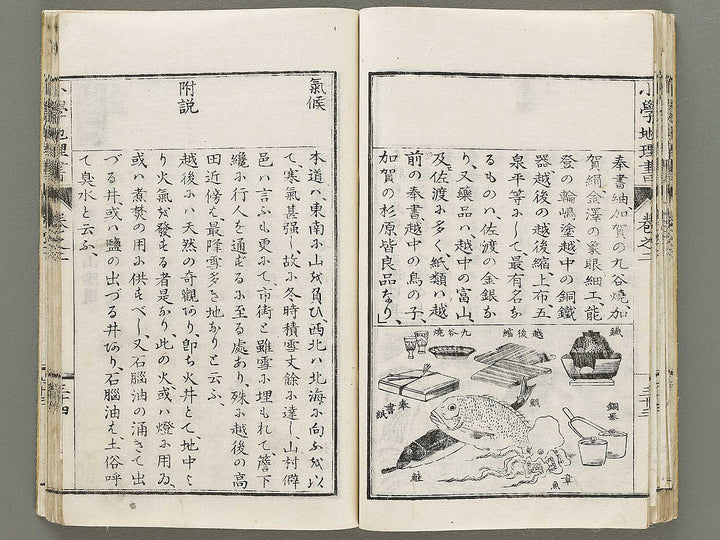 小學地理書 卷之二
奉書紬加賀の九谷燒加
賀絹金澤の象眼細工能
登の輪嶋塗越中の銅鐵
器越後の越後縮上布五
泉平等ふして、最有名な
るものハ、佐渡の金銀か
り、又藥品ハ、越中の富山、
及佐渡ふ多く紙類ハ越
前の奉書、越中の鳥の子、
加賀の杉原皆良品なり、
鐵
越後縮
九谷燒
銅器
鯛
奉書紙
章魚
鮭
三十三
氣候
本道ハ、東南ふ山を負ひ、西北ハ北海ふ向ふを以
て、寒氣甚强し、故ふ冬時積雪丈餘ふ達し、山村僻
邑ハ言ふも更ふて、市街と雖雪ふ埋もれて、簷下
纔ふ行人を通ずるふ至る處あり、殊ふ越後の高
田近傍え、最降雪多き地かりと云ふ、
附説
越後ふハ天然の奇觀あり、卽ち火井とて、地中よ
り火氣を發もる者是かり、此の火、或ハ燈ふ用ゐ、
或ハ煮焚の用ふ供もべし、又石腦油の涌きて出
づる井、或ハ鹽の出づる井あり、石腦油え、土俗呼
て臭水と云ふ、
小學地理書 卷之二
三十四